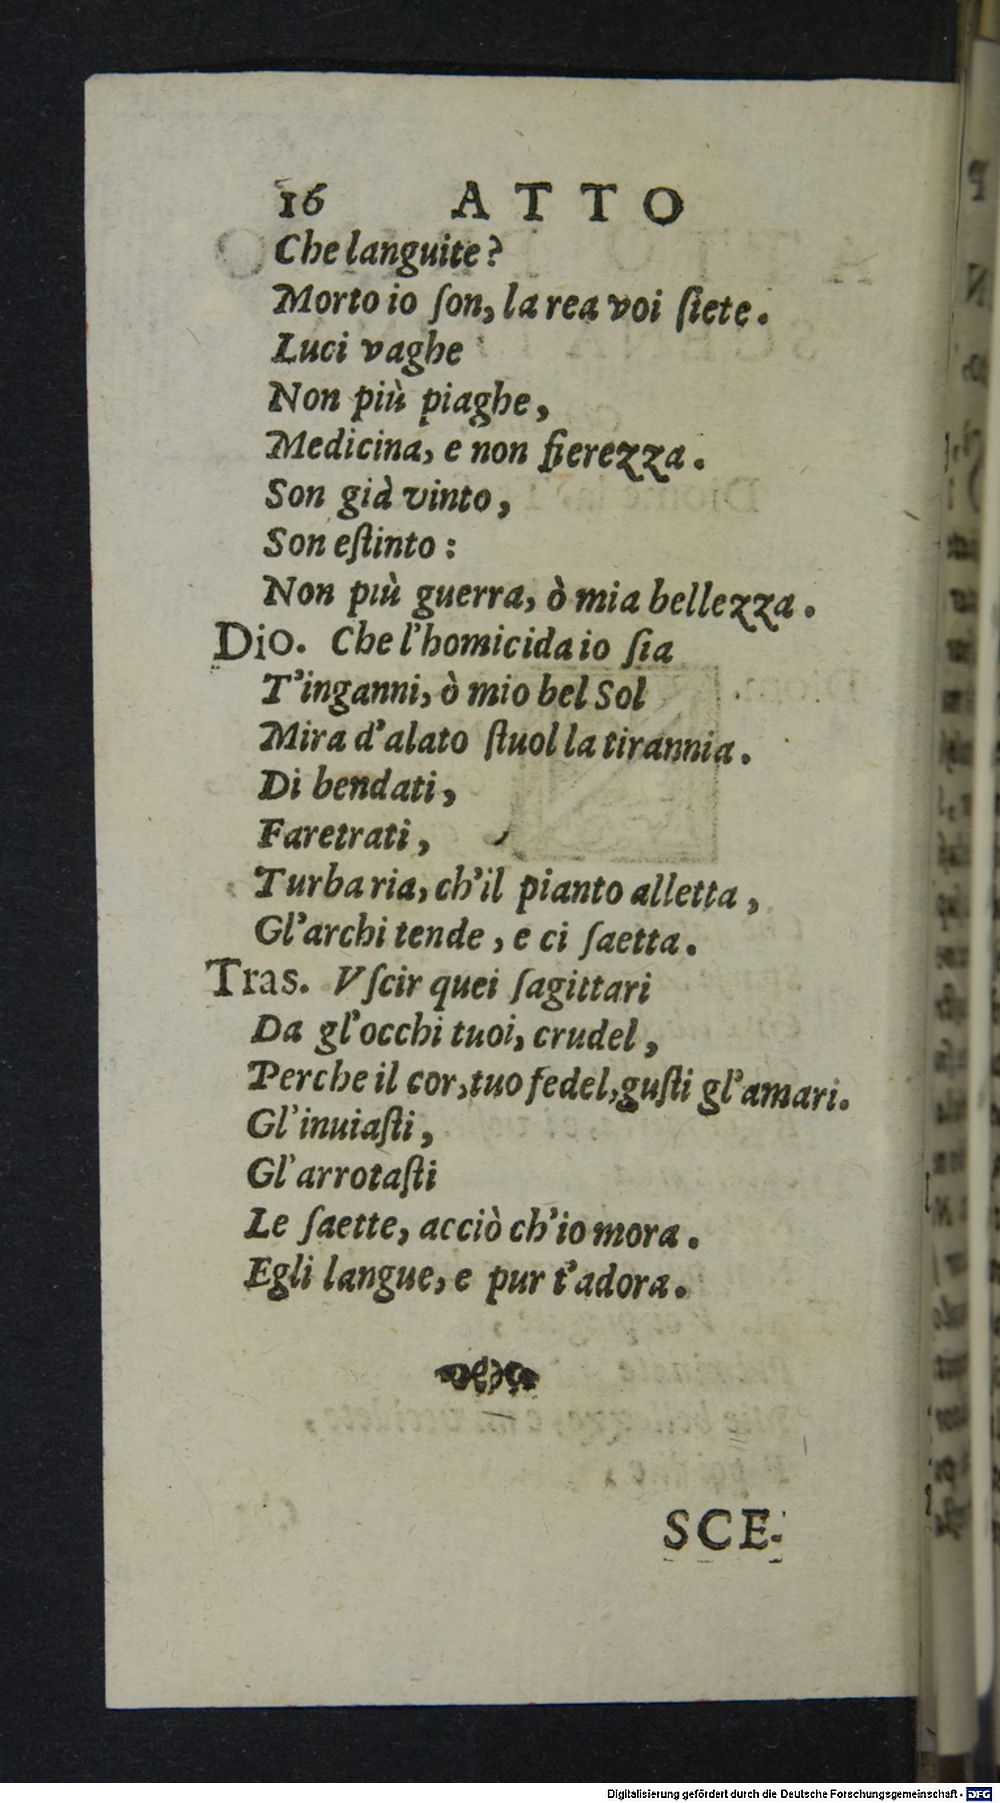 16 ATTO
Che languite?
Morto io ſon, la rea voi ſiete.
Luci vaghe
Non più piaghe,
Medicina, e non fierezza.
Son già vinto,
Son eſtinto:
Non più guerra, ò mia bellezza.
Dio. Che l'homicida io ſia
T'inganni, ò mio bel Sol
Mira d'alato ſtuol la tirannia.
Di bendati,
Faretrati,
Turba ria, ch'il pianto alletta,
Gl'archi tende, e ci ſaetta.
Tras. Vſcir quei ſagittari
Da gl'occhi tuoi, crudel,
Perche il cor, tuo fedel, guſti gl'amari.
Gl'inuiaſti,
Gl'arrotaſti
Le ſaette, acciò ch'io mora.
Egli langue, e pur t'adora.
SCE-
Digitalisierung gefördert durch die Deutsche Forschungsgemeinschaft - DFG